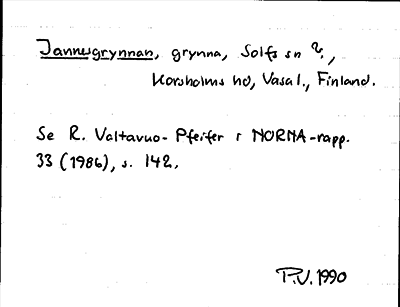 Jannusgrynnan, grynna, Solfs sn ?.,
Korsholms hd, Vasa l., Finland.
Se R. Valtavuo-Pfeifer i NORNA-rapp.
33 (1986), s. 142.
P.V. 1990